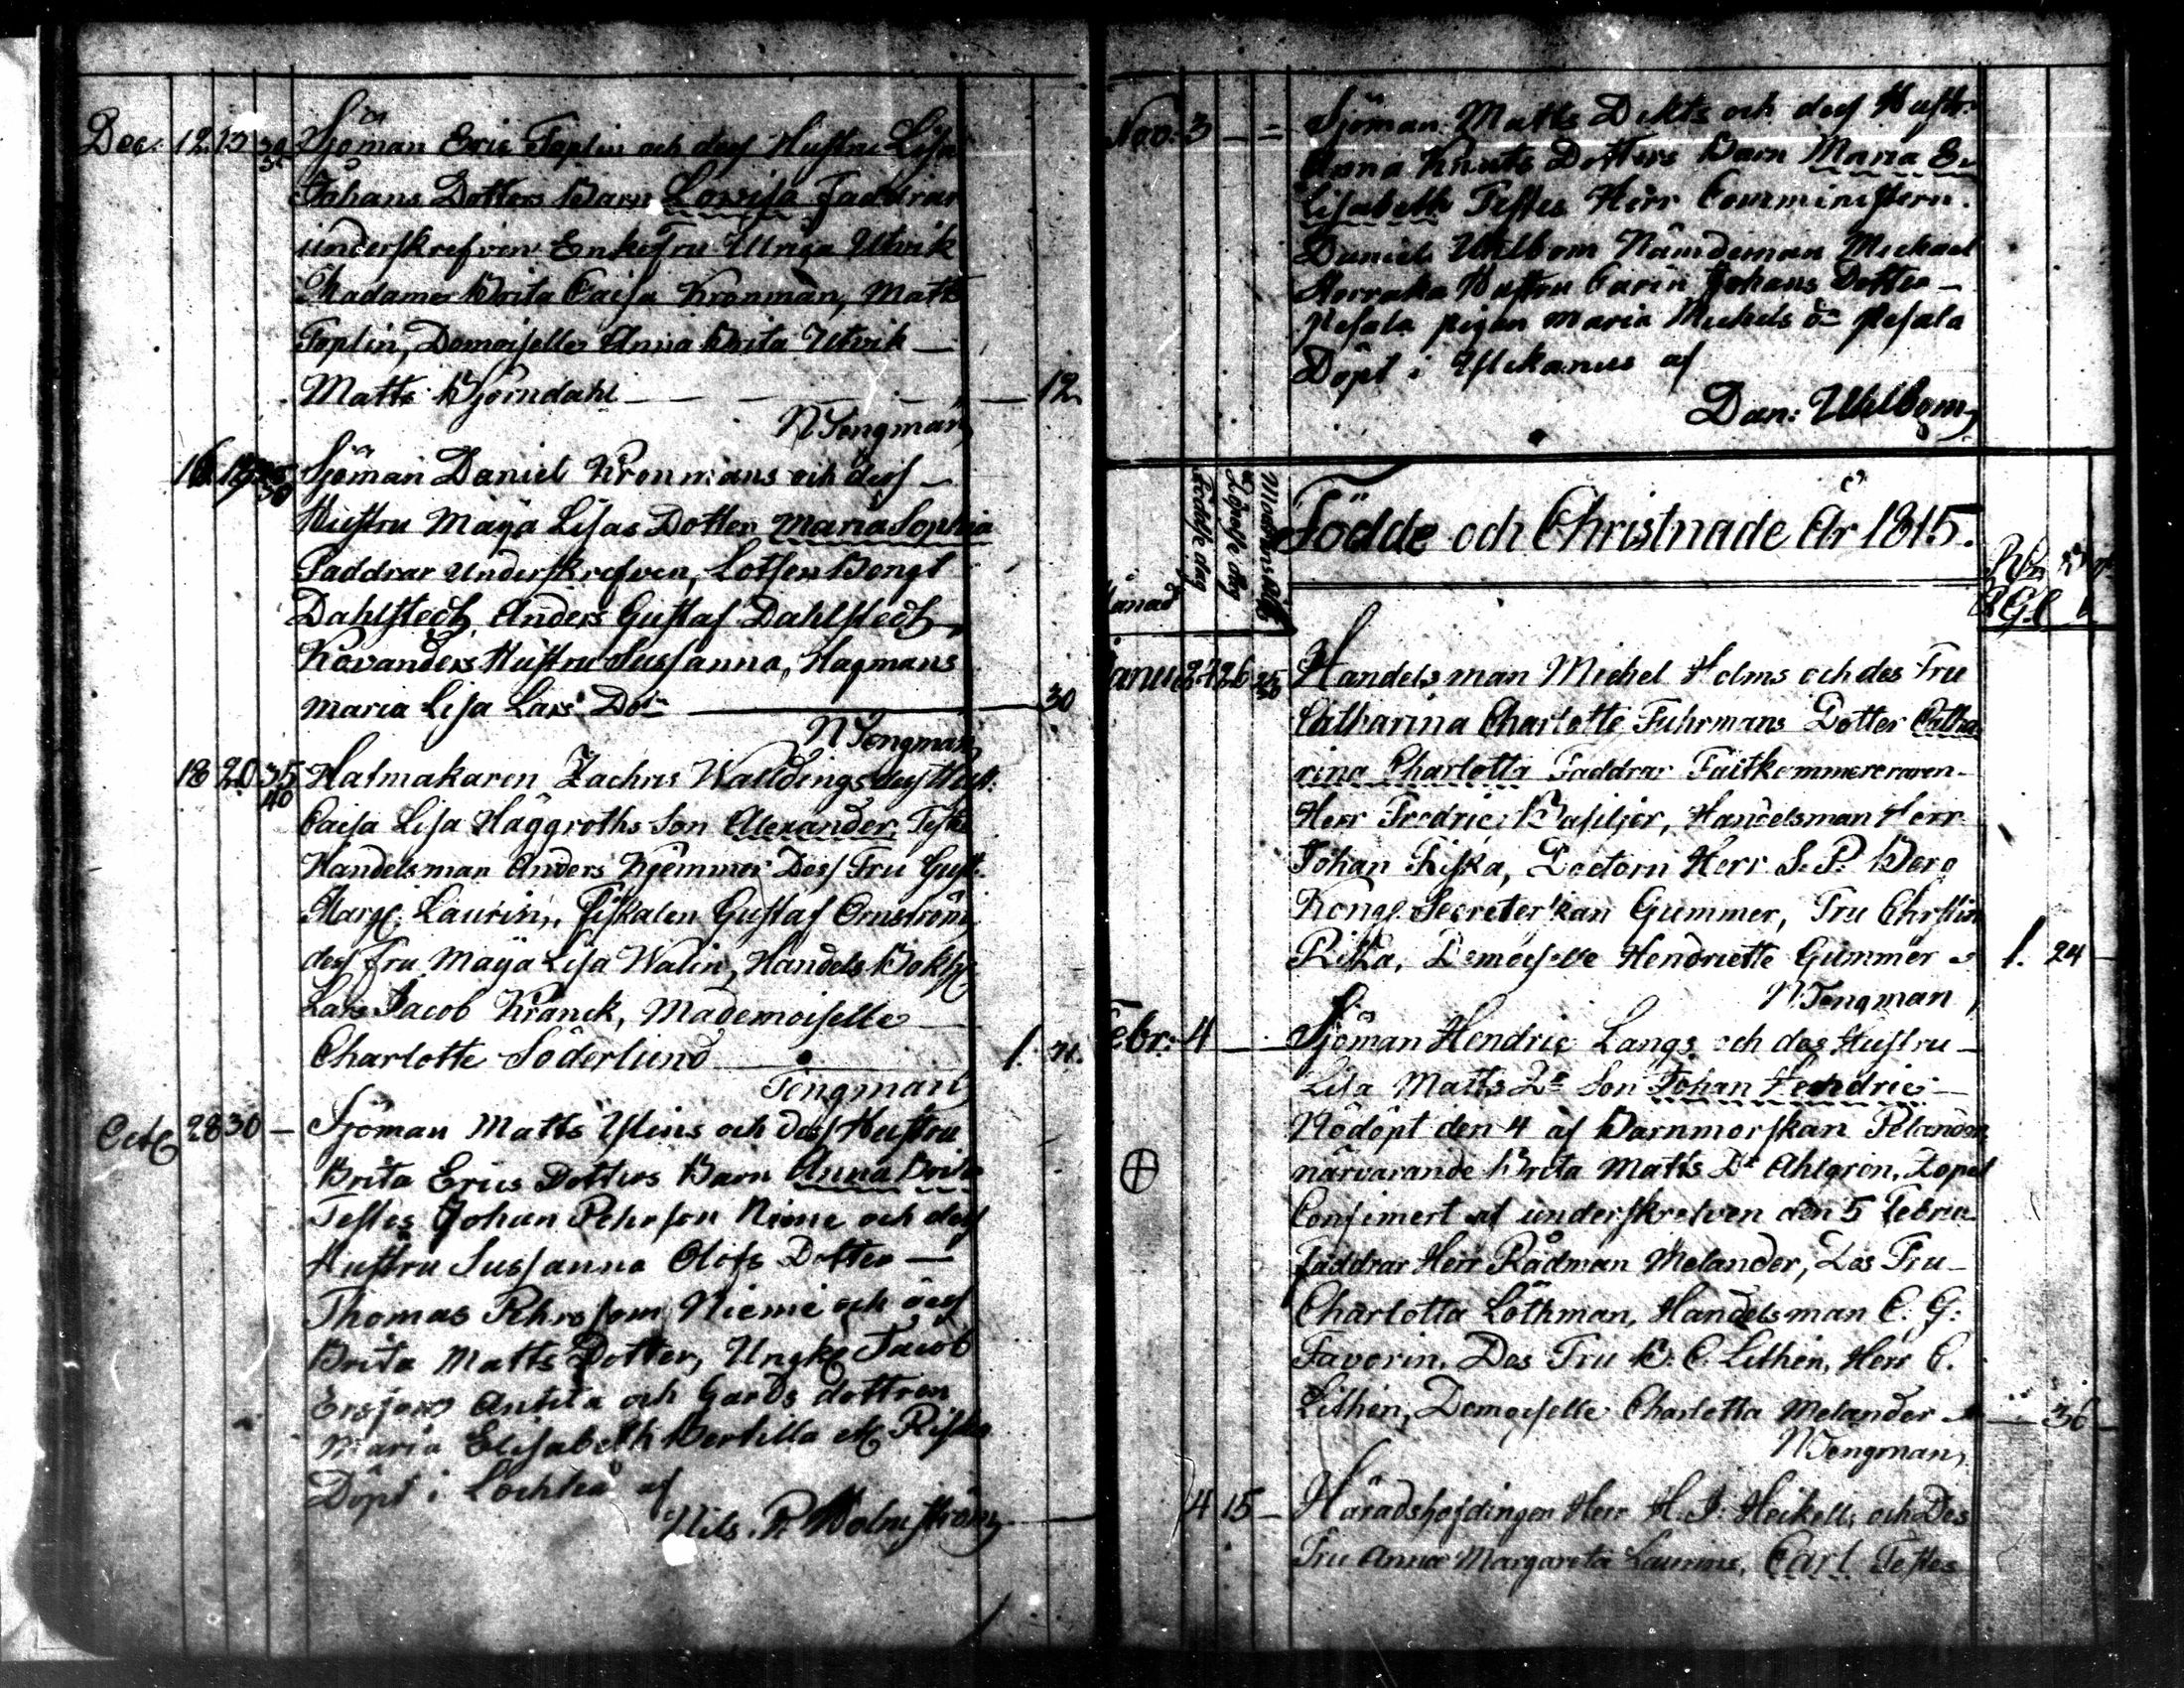 Dec: 12 13 30 Sjöman Eric Toplin och dess Hustru Lisa
Johans Dotters Barn Lovisa Faddrar
underskrefven Enkefru Ulrica Utvik
Madame Brita Caisa Kronman, Matts
Toplin, Demoiselle Anna Brita Utvik —
Matts Björndahl — — — — 12
N Tengman
16 19 Sjöman Daniel Kronmans och dess —
Hustru Maija Lisas Dotter Maria Sophia
Faddrar Underskrefven, Lotsen Bengt
Dahlstedt, Anders Gustaf Dahlstedt,
Kovanders Hustru Sussanna, Hagmans
Maria Lisa Lars Dotr — 30
N Tengman
18 20 35 40 Hatmakaren Zachris Walldings dess Hust:
Caisa Lisa Häggroths Son Alexander, Testes
Handelsman Anders Kjemmer Dess Fru Gust:
Marg: Laurin, Fiskalen Gustaf Ornström,
dess fru Maija Lisa Walin, Handels Bokh:
Lars Jacob Kranck, Mademoiselle —
Charlotte Söderlund — 1.
Tengman
Octb 28 30 — Sjöman Matts Yslins och dess Hustru
Brita Erics Dotters Barn Anna Brita
Testes Johan Pehrson Niemi och dess
Hustru Sussanna Olofs Dotter —
Thomas Pehrsson Niemi och dess
Brita Matts Dotter, Ungk: Jacob
Ersson Anttila och Gårds dottren
Maria Elisabeth Bertilla
Döpt i Lochteå af
Nils. Holmström
Nov. 3 — = Sjöman Matts Dekts och dess Hustr:
Anna Knuts Dotters Barn Maria E-
lisabeth Testes Herr Comministern
Daniel Uhlbom Nämdeman Michael
Hustru Carin Johans Dotter —
Pesala pigan Maria Michels dr Pesala
Döpt i af
Dan: Uhlbom
Månad Födelse dag Döpelse dag Modrens ålder
Födde och Christnade År 1815.
Januar 24 26 Handelsman Michel Holms och des Fru
Catharina Charlotte Fuhrmans Dotter Catha
rina Charlotta Faddrar
Herr Fredric Basilier, Handelsman Herr
Johan Riska, Doctorn Herr S. P. Berg
Kongl. Secreterskan Gummer, Fru Christin
Riska, Demoiselle Hendriette Gummer 1. 24 —
N. Tengman
Febr: 4 — Sjöman Hendric Langs och des Hustru —
Lisa Matts Dr Son Johan Hendric —
Nödöpt den 4 af Barnmorskan Pelander
närvarande Brita Matts Dr Ahlgren, Dopet
Confimert af underskrefven den 5 Februa
Faddrar Herr Rådman Melander, Des Fru —
Charlotta Löthman, Handelsman C. G.
Favorin, Des Fru B. C. Lithen, Herr C.
Lithen, Demoiselle Charlotta Melander — 36 —
N Tengman
14 15 — Häradshöfdingen Herr H. J. Heikells och Des
Fru Anna Margareta Laurins, Carl Testes